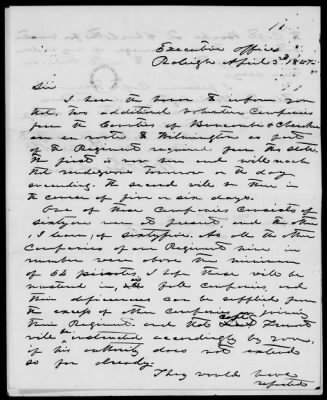 Executive Office
Raleigh April 3d 1847.
Sir
I have the honor to inform you
that, two additional Volunteer Companies
from the Counties of Buncombe & Cherokee
are en route to Wilmington as part
of the Regiment required from this State.
The first is now here and will reach
that rendezvous tomorrow or the day
succeeding. The second will be there in
the course of five or six days.
One of these Companies consists of
sixty one men at present and the other
I learn, of sixty five. As all the other
Companies of our Regiment nine in
number were above the minimum
of 64 privates, I hope these will be
mustered in, as full companies, and
their deficiences can be supplied from
the excess of other companies after joining
their Regiment, and that Lieut
will be instructed accordingly by you,
if his authority does not extend
so far already.
They would have
reported